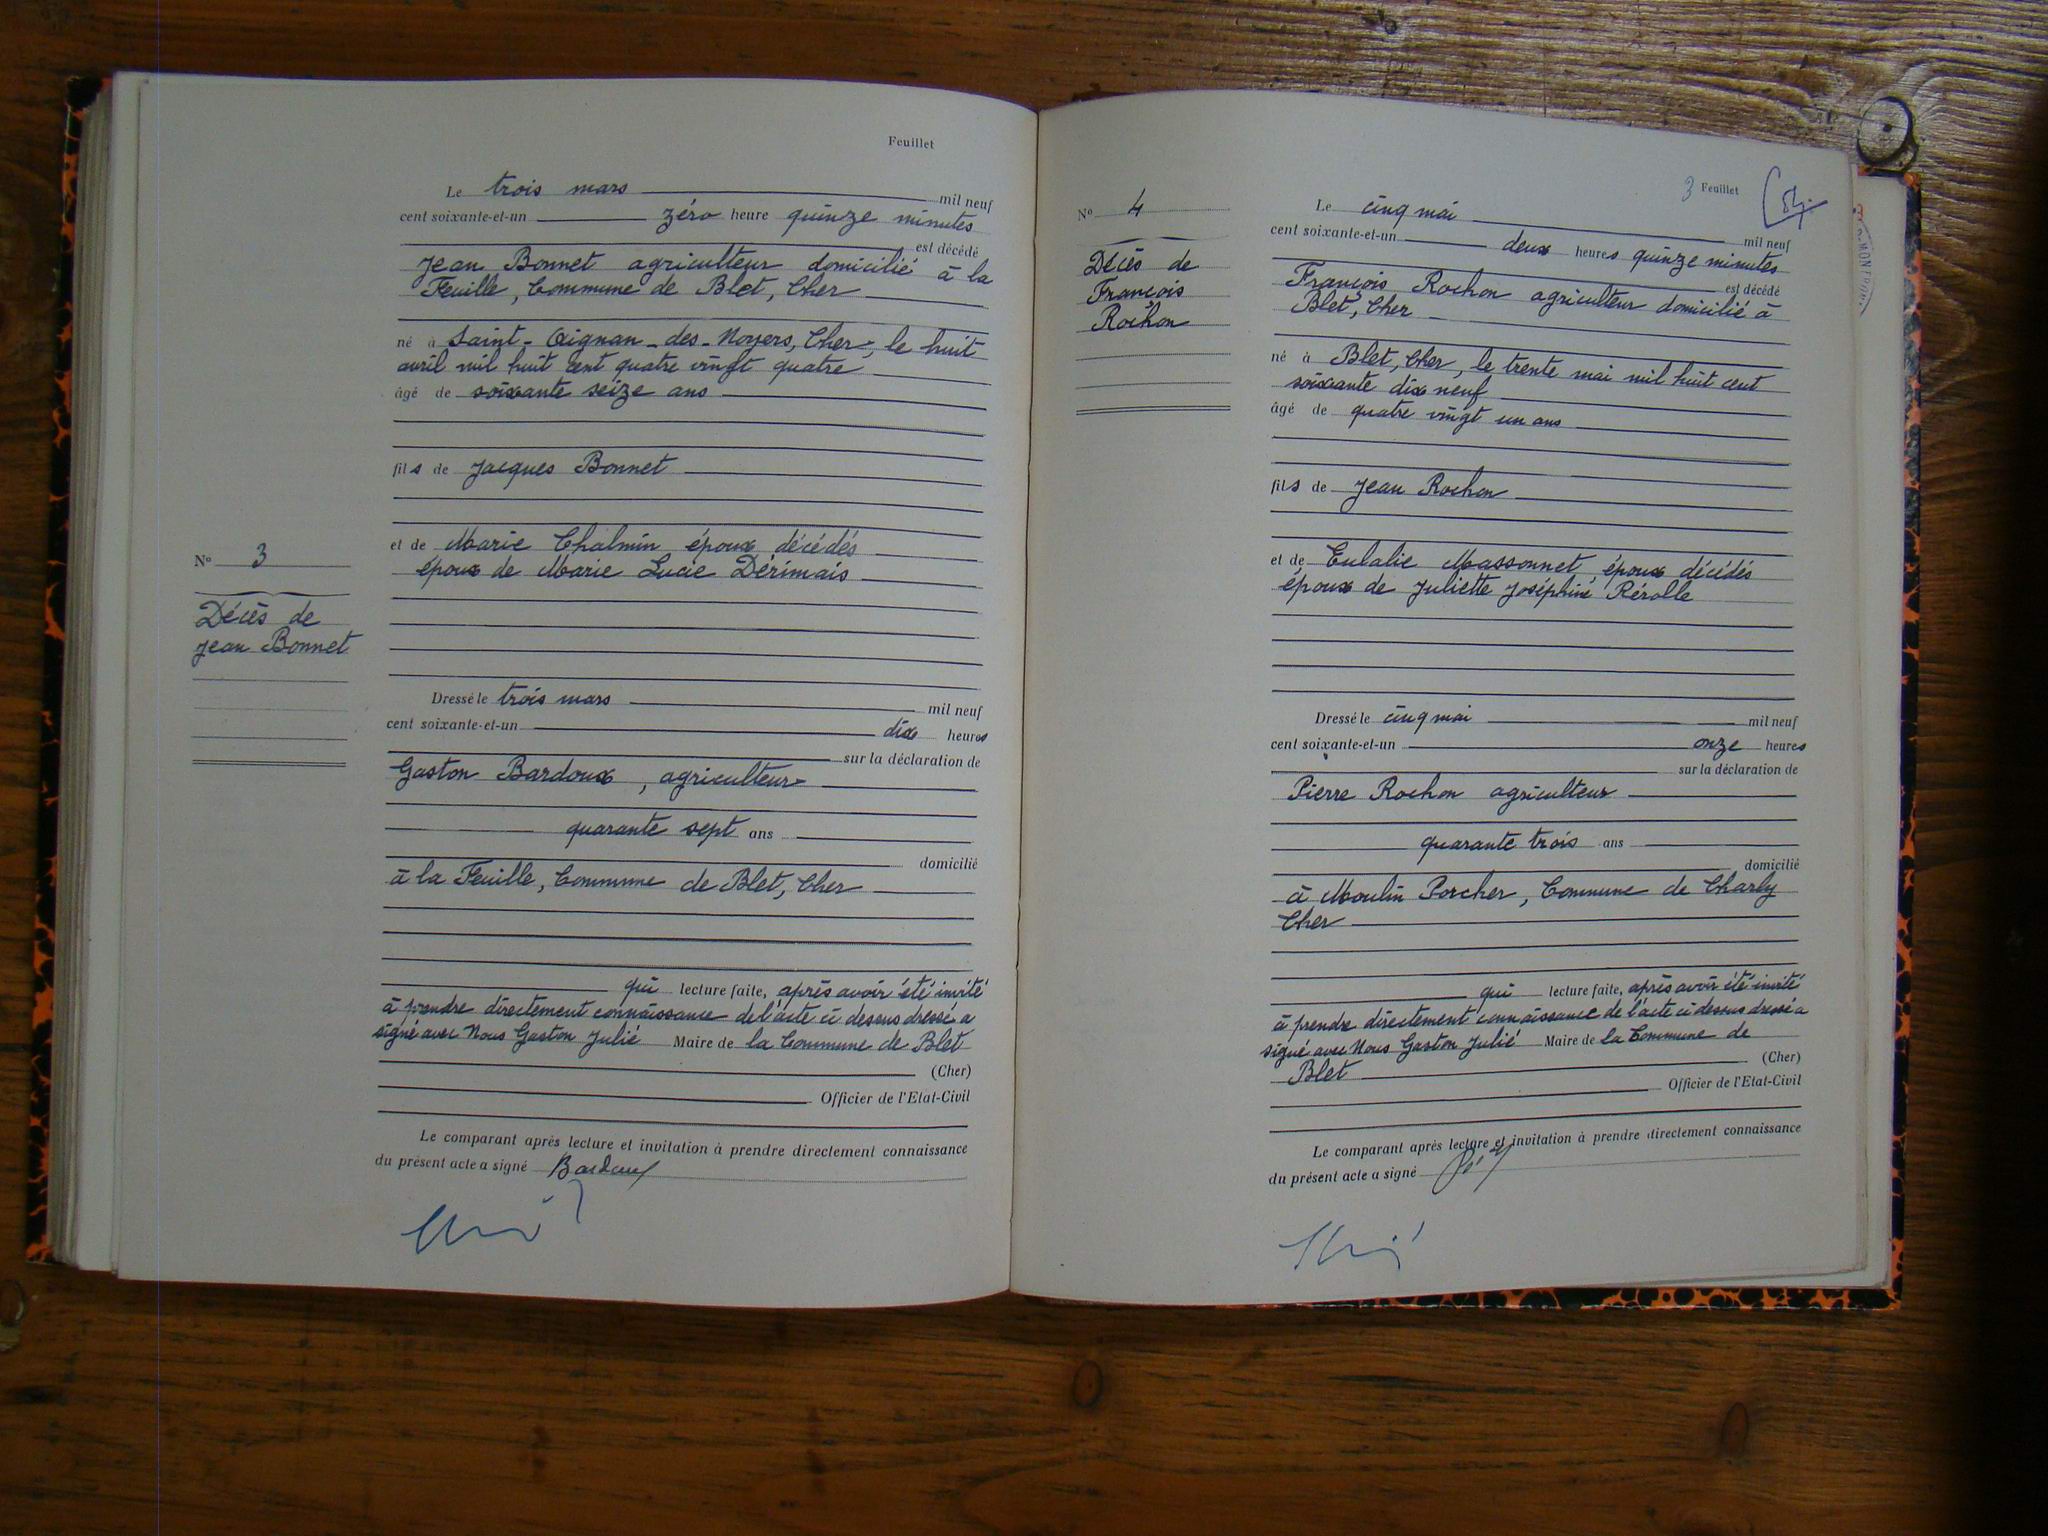 Feuillet
Le trois mars mil neuf
cent soixante-et-un zéro heure quinze minutes
est décédé
Jean Bonnet agriculteur domicilié à la
Feuille, Commune de Blet, Cher
né à Saint-Aignan-des-Noyers, Cher, le huit
avril mil huit cent quatre vingt quatre
âgé de soixante seize ans
fils de Jacques Bonnet
et de Marie Chalmin époux décédés
époux de Marie Lucie Dérimais
N° 3
Décès de
Jean Bonnet
Dressé le trois mars mil neuf
cent soixante-et-un dix heures
sur la déclaration de
Gaston Bardoux, agriculteur
quarante sept ans
domicilié
à la Feuille, Commune de Blet, Cher
qui lecture faite, après avoir été invité
à prendre directement connaissance de l'acte ci dessus dressé a
signé avec Nous Gaston Julié Maire de la Commune de Blet
(Cher)
Officier de l'Etat-Civil
Le comparant après lecture et invitation à prendre directement connaissance
du présent acte a signé Bardoux
3 Feuillet
N° 4
Décès de
François
Rochon
Le cinq mai mil neuf
cent soixante-et-un deux heures quinze minutes
est décédé
François Rochon agriculteur domicilié à
Blet, Cher
né à Blet, Cher, le trente mai mil huit cent
soixante dix neuf
âgé de quatre vingt un ans
fils de Jean Rochon
et de Eulalie Massonnet époux décédés
époux de Juliette Joséphine Rérolle
Dressé le cinq mai mil neuf
cent soixante-et-un onze heures
sur la déclaration de
Pierre Rochon agriculteur
quarante trois ans
domicilié
à Moulin Porcher, Commune de Charly
Cher
qui lecture faite, après avoir été invité
à prendre directement connaissance de l'acte ci dessus dressé a
signé avec Nous Gaston Julié Maire de la Commune de
Blet (Cher)
Officier de l'Etat-Civil
Le comparant après lecture et invitation à prendre directement connaissance
du présent acte a signé